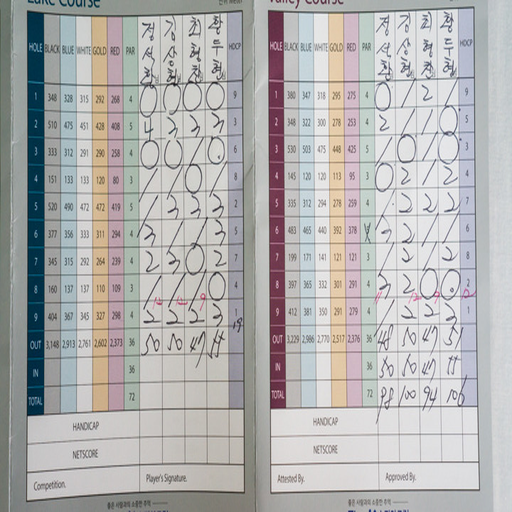 Lake Course
HOLE BLACK BLUE WHITE GOLD RED PAR 정석환 김상형 최형찬 황두형 HDCP
1 348 328 315 292 268 4 0 0 0 0 9
2 510 475 451 428 408 5 4 3 3 3 3
3 333 312 291 290 258 4 0 0 / 0 6
4 151 133 133 120 80 3 / / 0 / 8
5 520 490 472 472 419 5 / 3 3 3 2
6 377 356 333 311 294 4 3 / / 3 5
7 345 315 292 264 239 4 2 3 0 2 7
8 160 137 137 110 109 3 / / / 0 4
9 404 367 345 327 298 4 2 2 2 3 1
OUT 3,148 2,913 2,761 2,602 2,373 36 50 50 47
IN 36
TOTAL 72
HANDICAP
NETSCORE
Competition. Player's Signature.
Valley Course
HOLE BLACK BLUE WHITE GOLD RED PAR 정석환 김상형 최형찬 황두형 HDCP
1 380 347 318 295 275 4 0 / 2 / 9
2 348 322 300 278 253 4 2 / / 0 5
3 530 503 475 448 425 5 / 0 / 0 3
4 145 120 120 113 95 3 0 2 / 2 4
5 335 312 294 278 259 4 / 2 2 2 7
6 483 465 440 392 378 3 2 / / 6
7 199 171 141 121 121 3 / 2 / 2 8
8 397 365 332 301 291 4 3 2 0 0 2
9 412 381 350 291 279 4 / 2 2 3 1
OUT 3,229 2,986 2,770 2,517 2,376 36 48 50 47 51
IN 36 50 50 47
TOTAL 72 98 100 94 106
HANDICAP
NETSCORE
Attested By. Approved By.